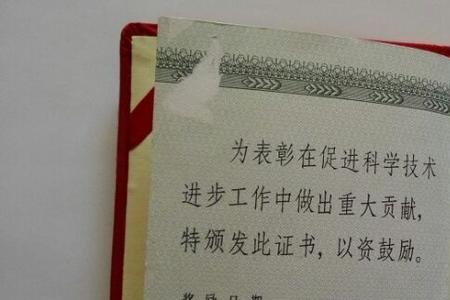 为表彰在促进科学技术
进步工作中做出重大贡献，
特颁发此证书，以资鼓励。